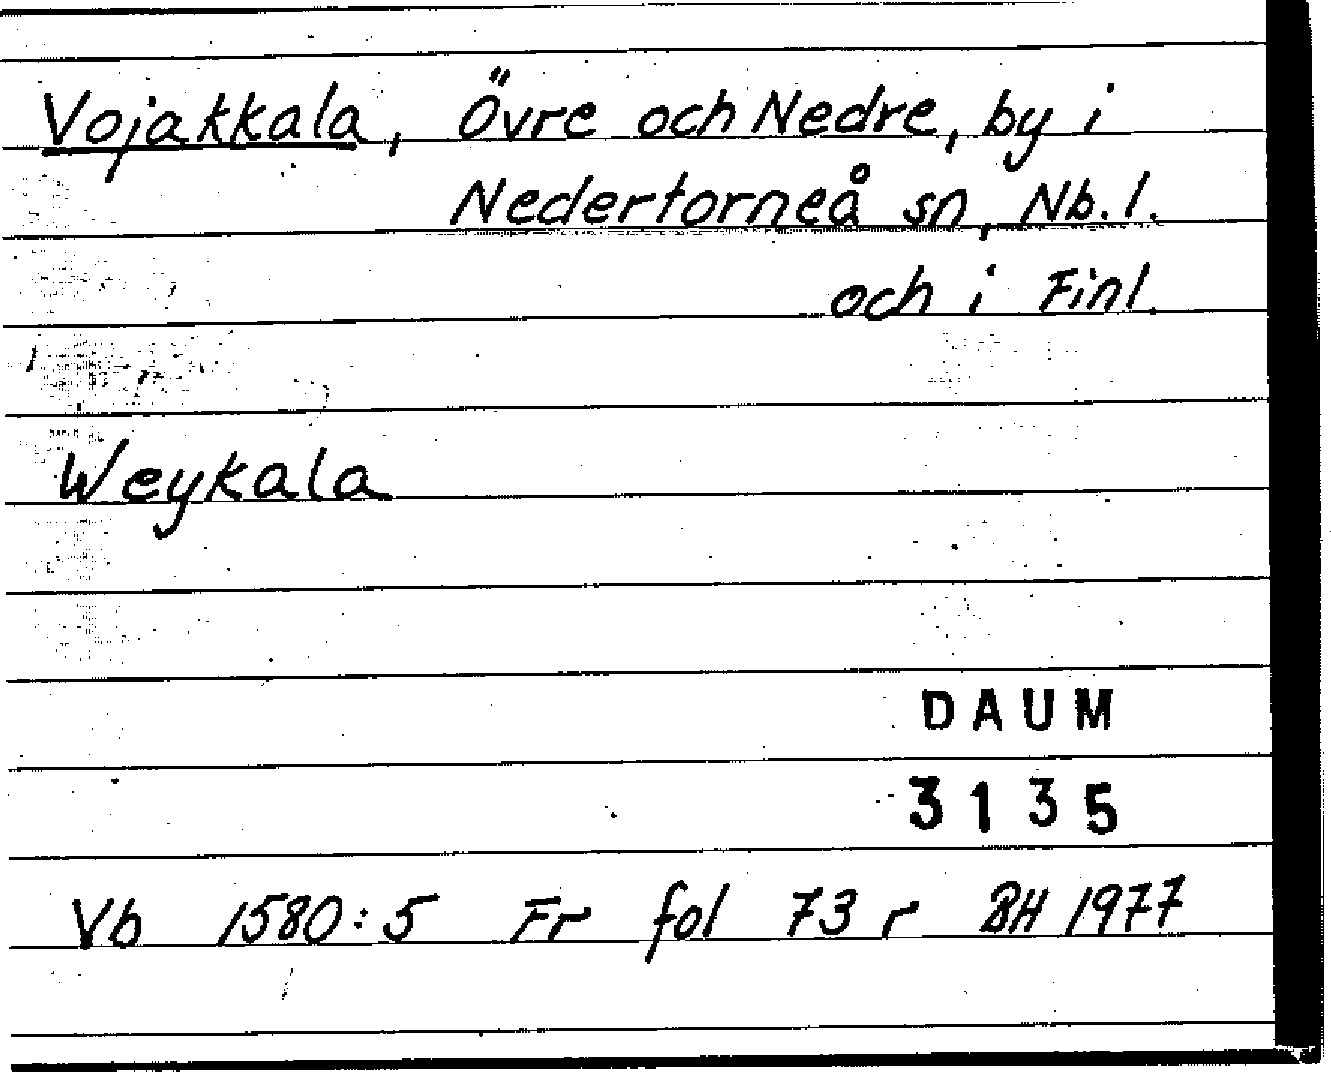 Vojakkala, Övre och Nedre, by i
Nedertorneå sn, Nb. l.
och i Finl.
Weykala
DAUM
3135
Vb 1580:5 Fr fol 73 r BH 1977